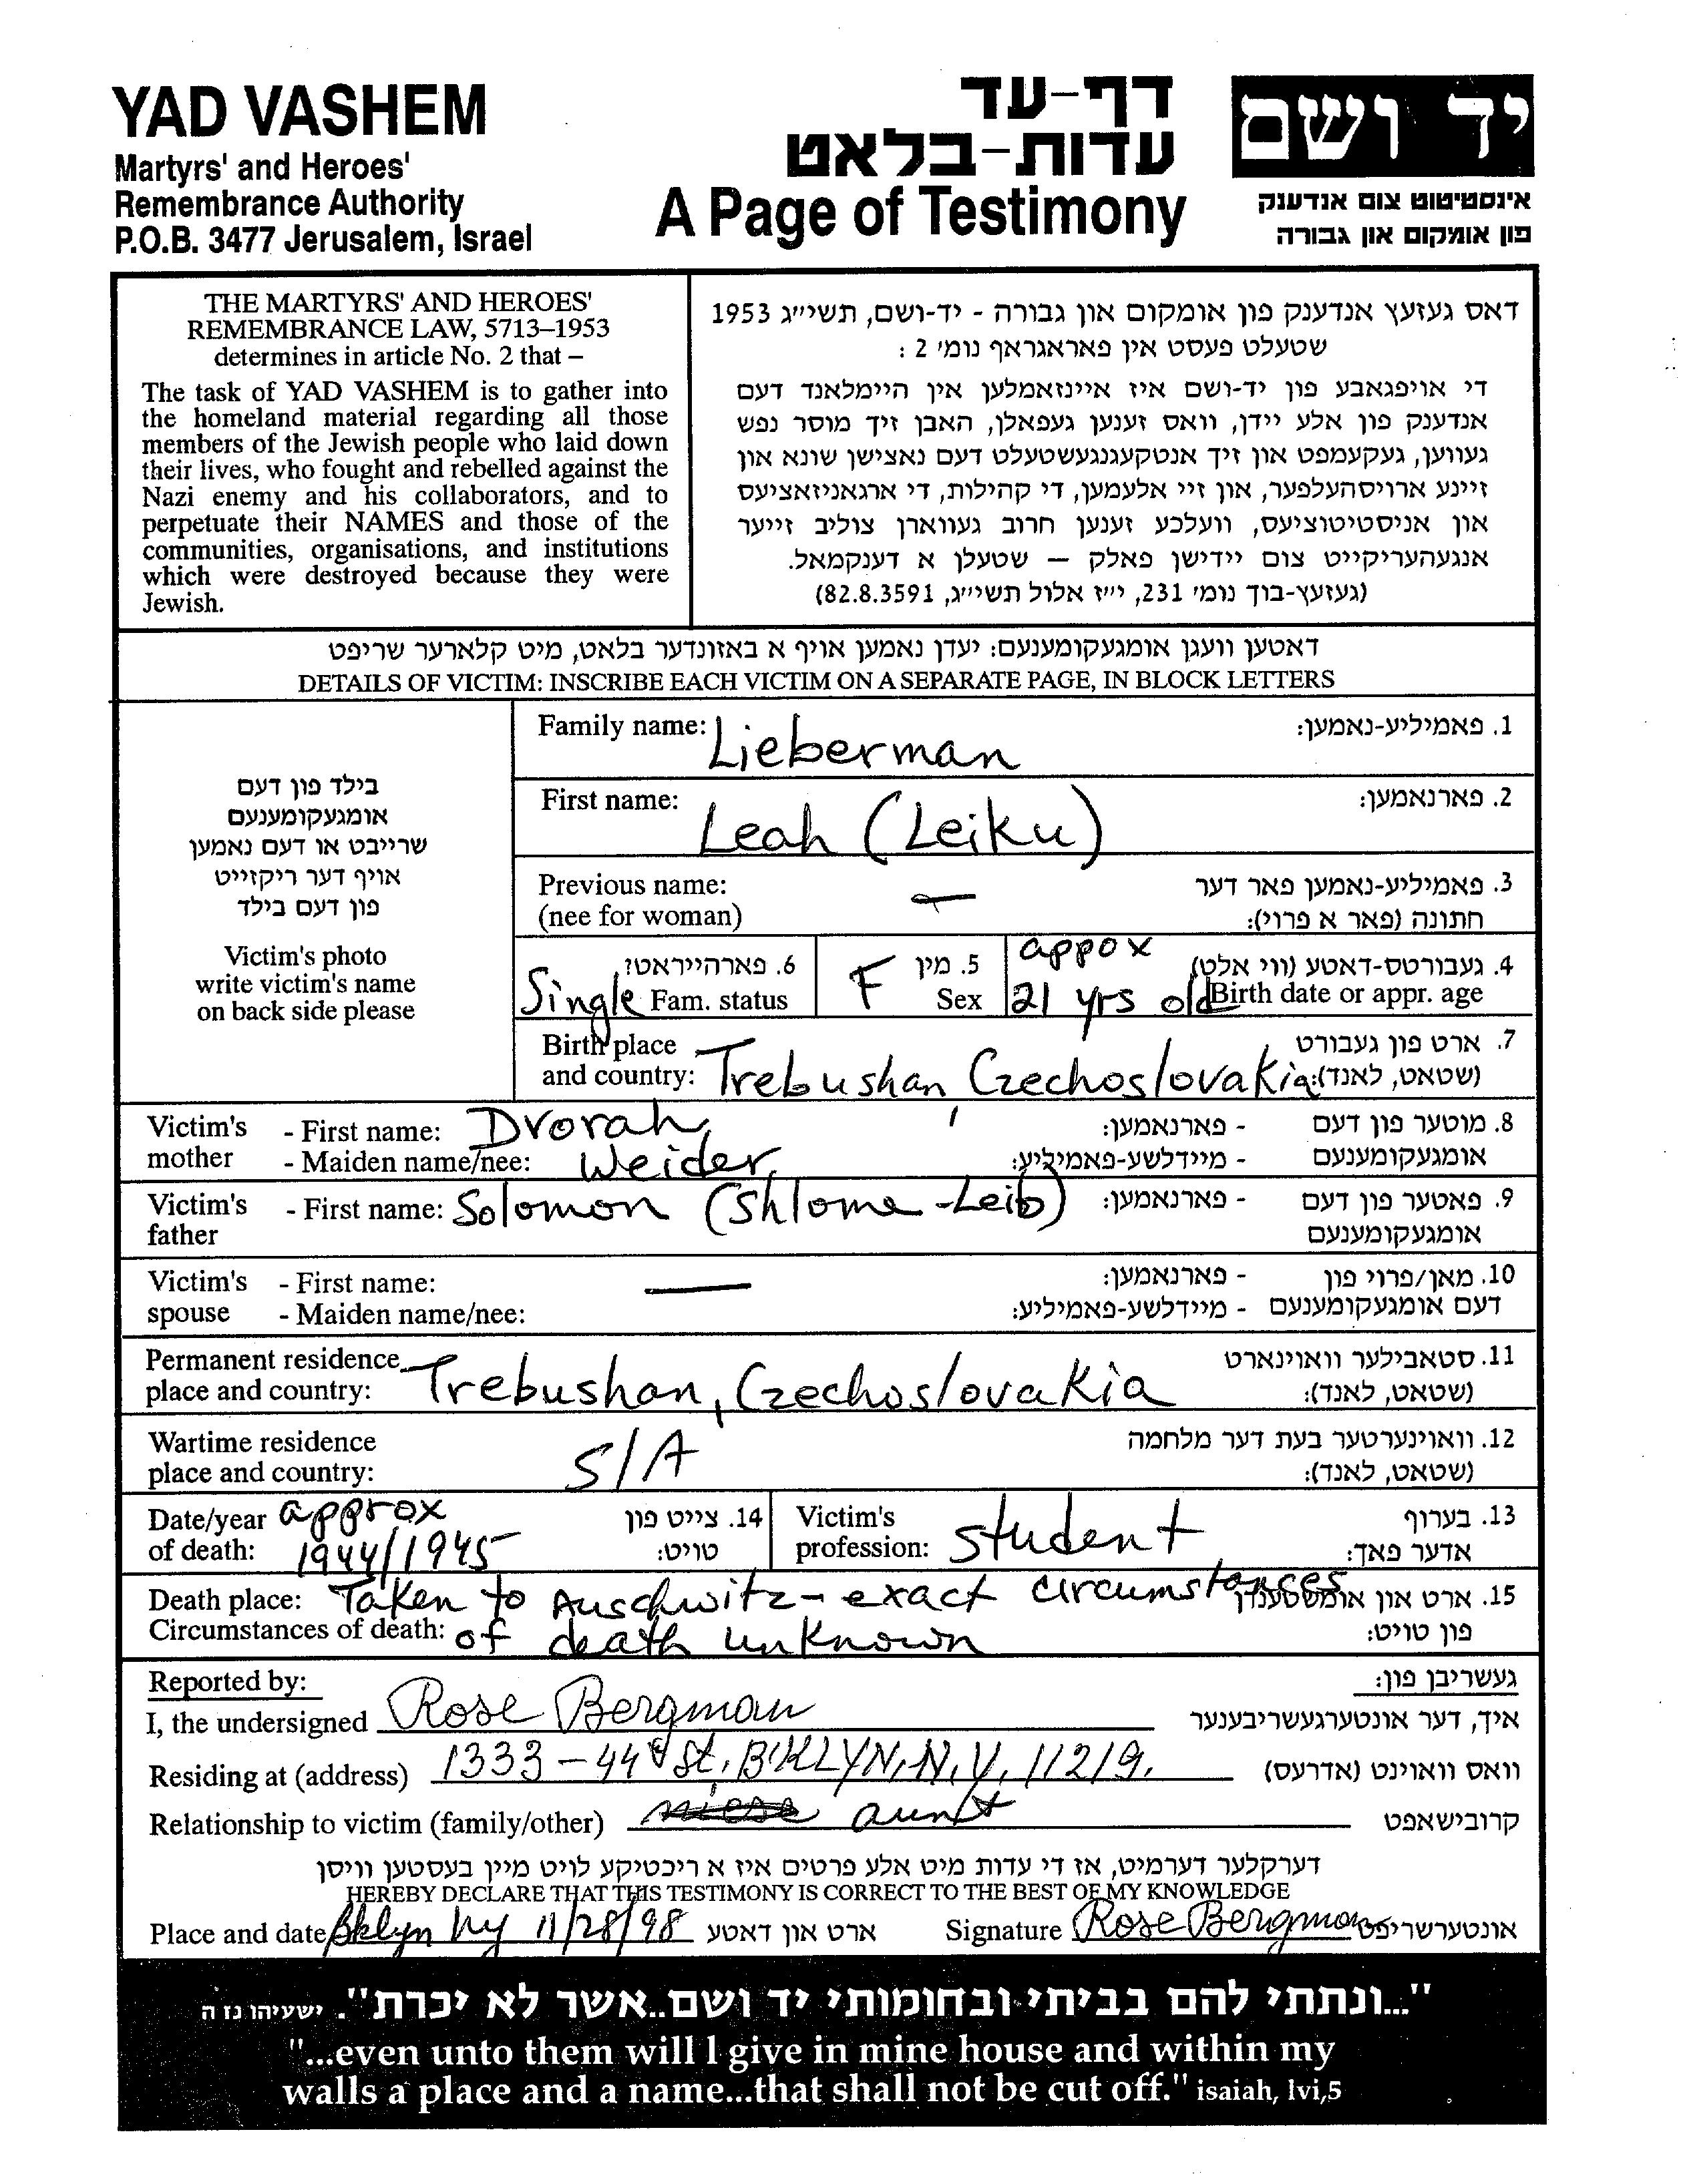 YAD VASHEM
Martyrs' and Heroes'
Remembrance Authority
P.O.B. 3477 Jerusalem, Israel
דף-עד
עדות-בלאט
A Page of Testimony
יד ושם
אינסטיטוט צום אנדענק
פון אומקום און גבורה
THE MARTYRS' AND HEROES'
REMEMBRANCE LAW, 5713–1953
determines in article No. 2 that –
The task of YAD VASHEM is to gather into
the homeland material regarding all those
members of the Jewish people who laid down
their lives, who fought and rebelled against the
Nazi enemy and his collaborators, and to
perpetuate their NAMES and those of the
communities, organisations, and institutions
which were destroyed because they were
Jewish.
דאס געזעץ אנדענק פון אומקום און גבורה - יד-ושם, תשי״ג 1953
שטעלט פעסט אין פאראגראף נומ׳ 2 :
די אויפגאבע פון יד-ושם איז איינזאמלען אין היימלאנד דעם
אנדענק פון אלע יידן, וואס זענען געפאלן, האבן זיך מוסר נפש
געווען, געקעמפט און זיך אנטקעגנגעשטעלט דעם נאצישן שונא און
זיינע ארויסהעלפער, און זיי אלעמען, די קהילות, די ארגאניזאציעס
און אניסטיטוציעס, וועלכע זענען חרוב געווארן צוליב זייער
אנגעהעריקייט צום יידישן פאלק — שטעלן א דענקמאל.
(געזעץ-בוך נומ׳ 231, י״ז אלול תשי״ג, 82.8.3591)
דאטען וועגן אומגעקומענעם: יעדן נאמען אויף א באזונדער בלאט, מיט קלארער שריפט
DETAILS OF VICTIM: INSCRIBE EACH VICTIM ON A SEPARATE PAGE, IN BLOCK LETTERS
בילד פון דעם
אומגעקומענעם
שרייבט או דעם נאמען
אויף דער ריקזייט
פון דעם בילד
Victim's photo
write victim's name
on back side please
Family name: Lieberman 1. פאמיליע-נאמען:
First name: Leah (Leiku) 2. פארנאמען:
Previous name: — 3. פאמיליע-נאמען פאר דער
(nee for woman) חתונה (פאר א פרוי):
6. פארהייראט? 5. מין appox 4. געבורטס-דאטע (ווי אלט)
Single Fam. status F Sex 21 yrs old Birth date or appr. age
Birth place 7. ארט פון געבורט
and country: Trebushan, Czechoslovakia (שטאט, לאנד):
Victim's - First name: Dvorah - פארנאמען: 8. מוטער פון דעם
mother - Maiden name/nee: Weider - מיידלשע-פאמיליע: אומגעקומענעם
Victim's - First name: Solomon (Shlome-Leib) - פארנאמען: 9. פאטער פון דעם
father אומגעקומענעם
Victim's - First name: — - פארנאמען: 10. מאן/פרוי פון
spouse - Maiden name/nee: - מיידלשע-פאמיליע: דעם אומגעקומענעם
Permanent residence 11. סטאבילער וואוינארט
place and country: Trebushan, Czechoslovakia (שטאט, לאנד):
Wartime residence 12. וואוינערטער בעת דער מלחמה
place and country: S/A (שטאט, לאנד):
Date/year approx 14. צייט פון Victim's 13. בערוף
of death: 1944/1945 טויט: profession: student אדער פאך:
Death place: Taken to Auschwitz - exact circumstances 15. ארט און אומשטענדן
Circumstances of death: of death unknown פון טויט:
Reported by: געשריבן פון:
I, the undersigned Rose Bergman איך, דער אונטערגעשריבענער
Residing at (address) 1333 - 44 St, BKLYN, N.Y. 11219. וואס וואוינט (אדרעס)
Relationship to victim (family/other) aunt קרובישאפט
דערקלער דערמיט, אז די עדות מיט אלע פרטים איז א ריכטיקע לויט מיין בעסטען וויסן
HEREBY DECLARE THAT THIS TESTIMONY IS CORRECT TO THE BEST OF MY KNOWLEDGE
Place and date Bklyn Ny 11/28/98 ארט און דאטע Signature Rose Bergman אונטערשריפט
"...ונתתי להם בביתי ובחומותי יד ושם..אשר לא יכרת". ישעיהו נז ה
"...even unto them will I give in mine house and within my
walls a place and a name...that shall not be cut off." isaiah, lvi,5